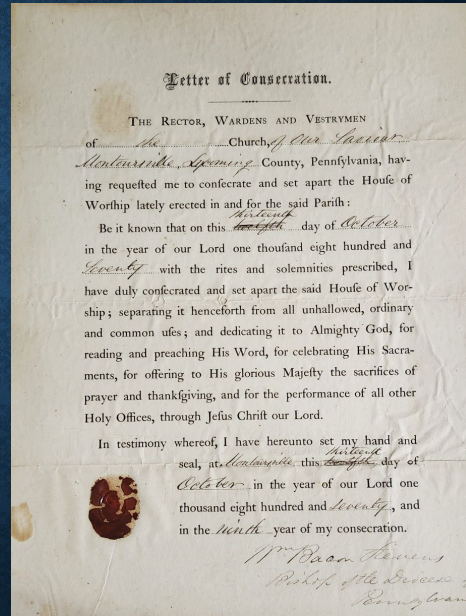 Letter of Consecration.
The Rector, Wardens and Vestrymen
of the Church, of Our Saviour
Montoursville, Lycoming County, Pennſylvania, hav-
ing requeſted me to conſecrate and set apart the Houſe of
Worſhip lately erected in and for the said Pariſh:
thirteenth
Be it known that on this twelfth day of October
in the year of our Lord one thouſand eight hundred and
Seventy with the rites and solemnities prescribed, I
have duly conſecrated and set apart the said Houſe of Wor-
ship; separating it henceforth from all unhallowed, ordinary
and common uſes; and dedicating it to Almighty God, for
reading and preaching His Word, for celebrating His Sacra-
ments, for offering to His glorious Majeſty the sacrifices of
prayer and thankſgiving, and for the performance of all other
Holy Offices, through Jeſus Chriſt our Lord.
In testimony whereof, I have hereunto set my hand and
thirteenth
seal, at Montoursville this twelfth day of
October in the year of our Lord one
thousand eight hundred and seventy, and
in the ninth year of my consecration.
Wm Bacon Stevens
Bishop of the Diocese
Pennsylvan